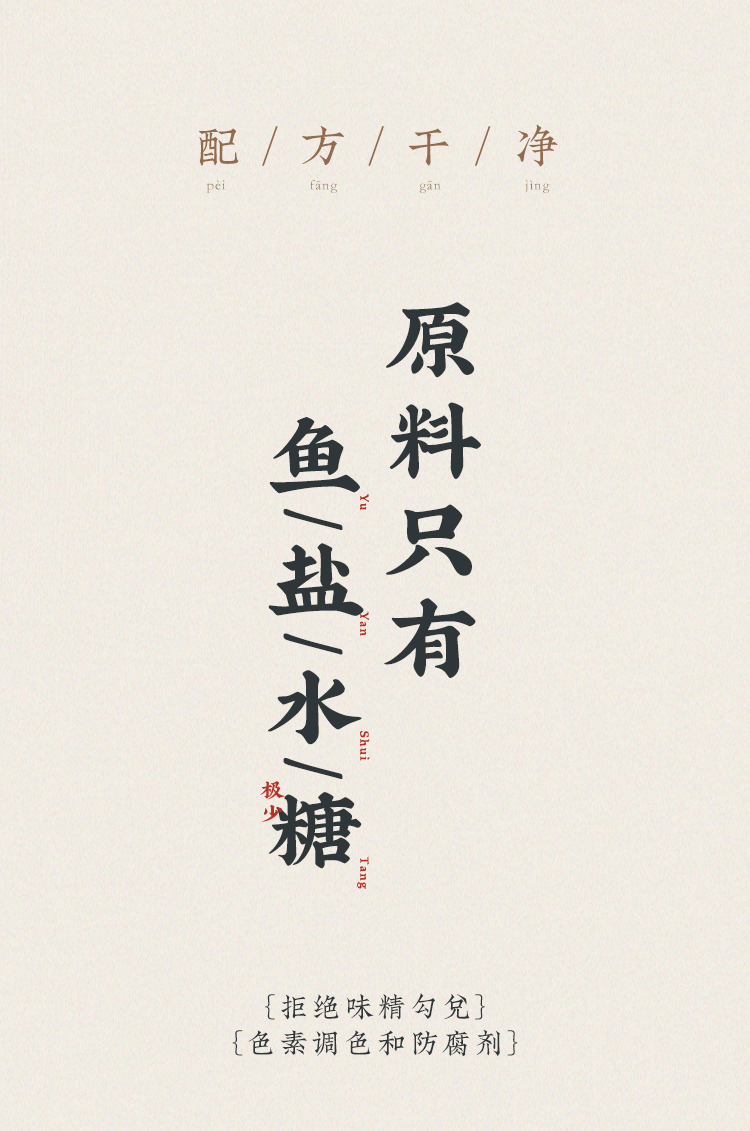 配/方/干/净
pèi fāng gān jìng
原料只有
鱼/盐/水/糖
Yu Yan Shui Tang
极少
{拒绝味精勾兑}
{色素调色和防腐剂}